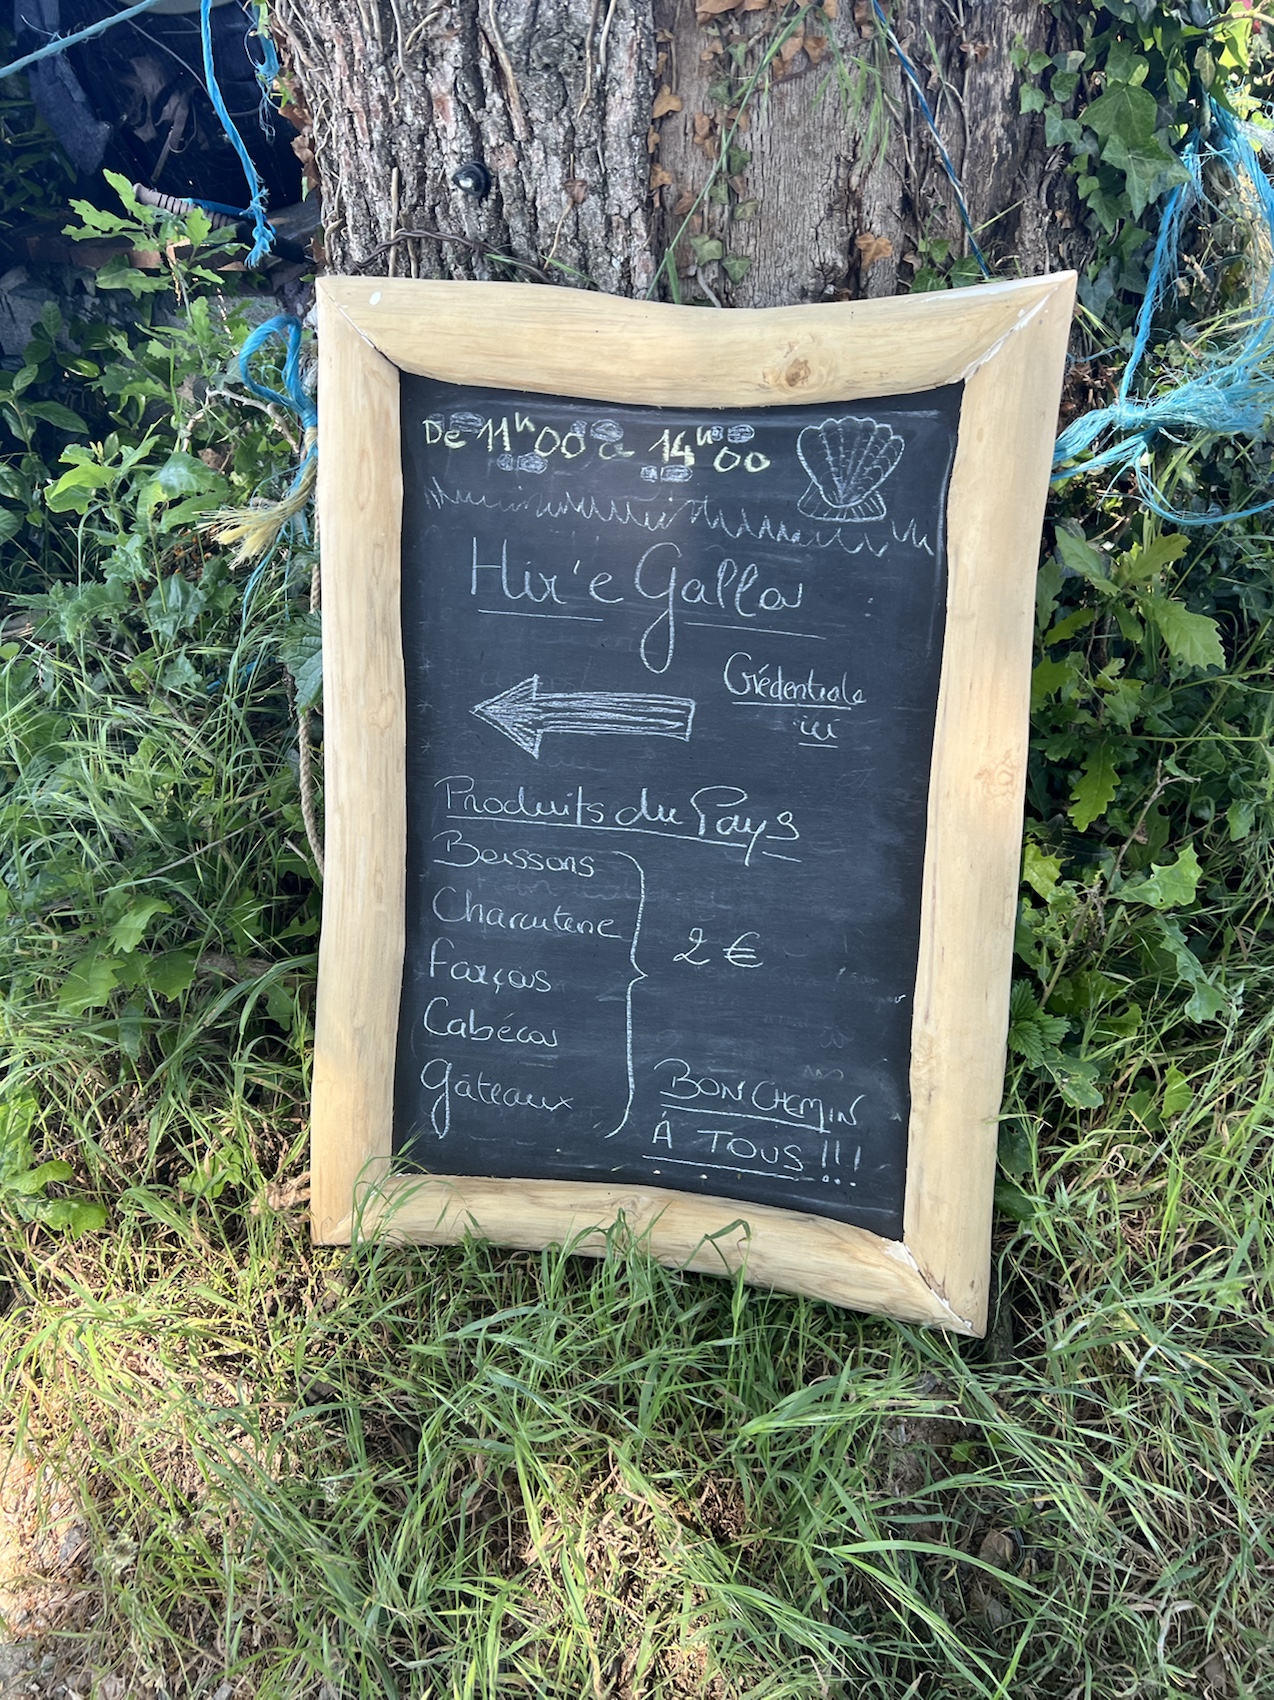 De 11h00 a 14h00
Hir'e Gallos
Crédentiale
ici
Produits du Pays
Boissons
Charcuterie
Farçous
2 €
Cabécou
Gâteaux
BON CHEMIN
À TOUS !!!